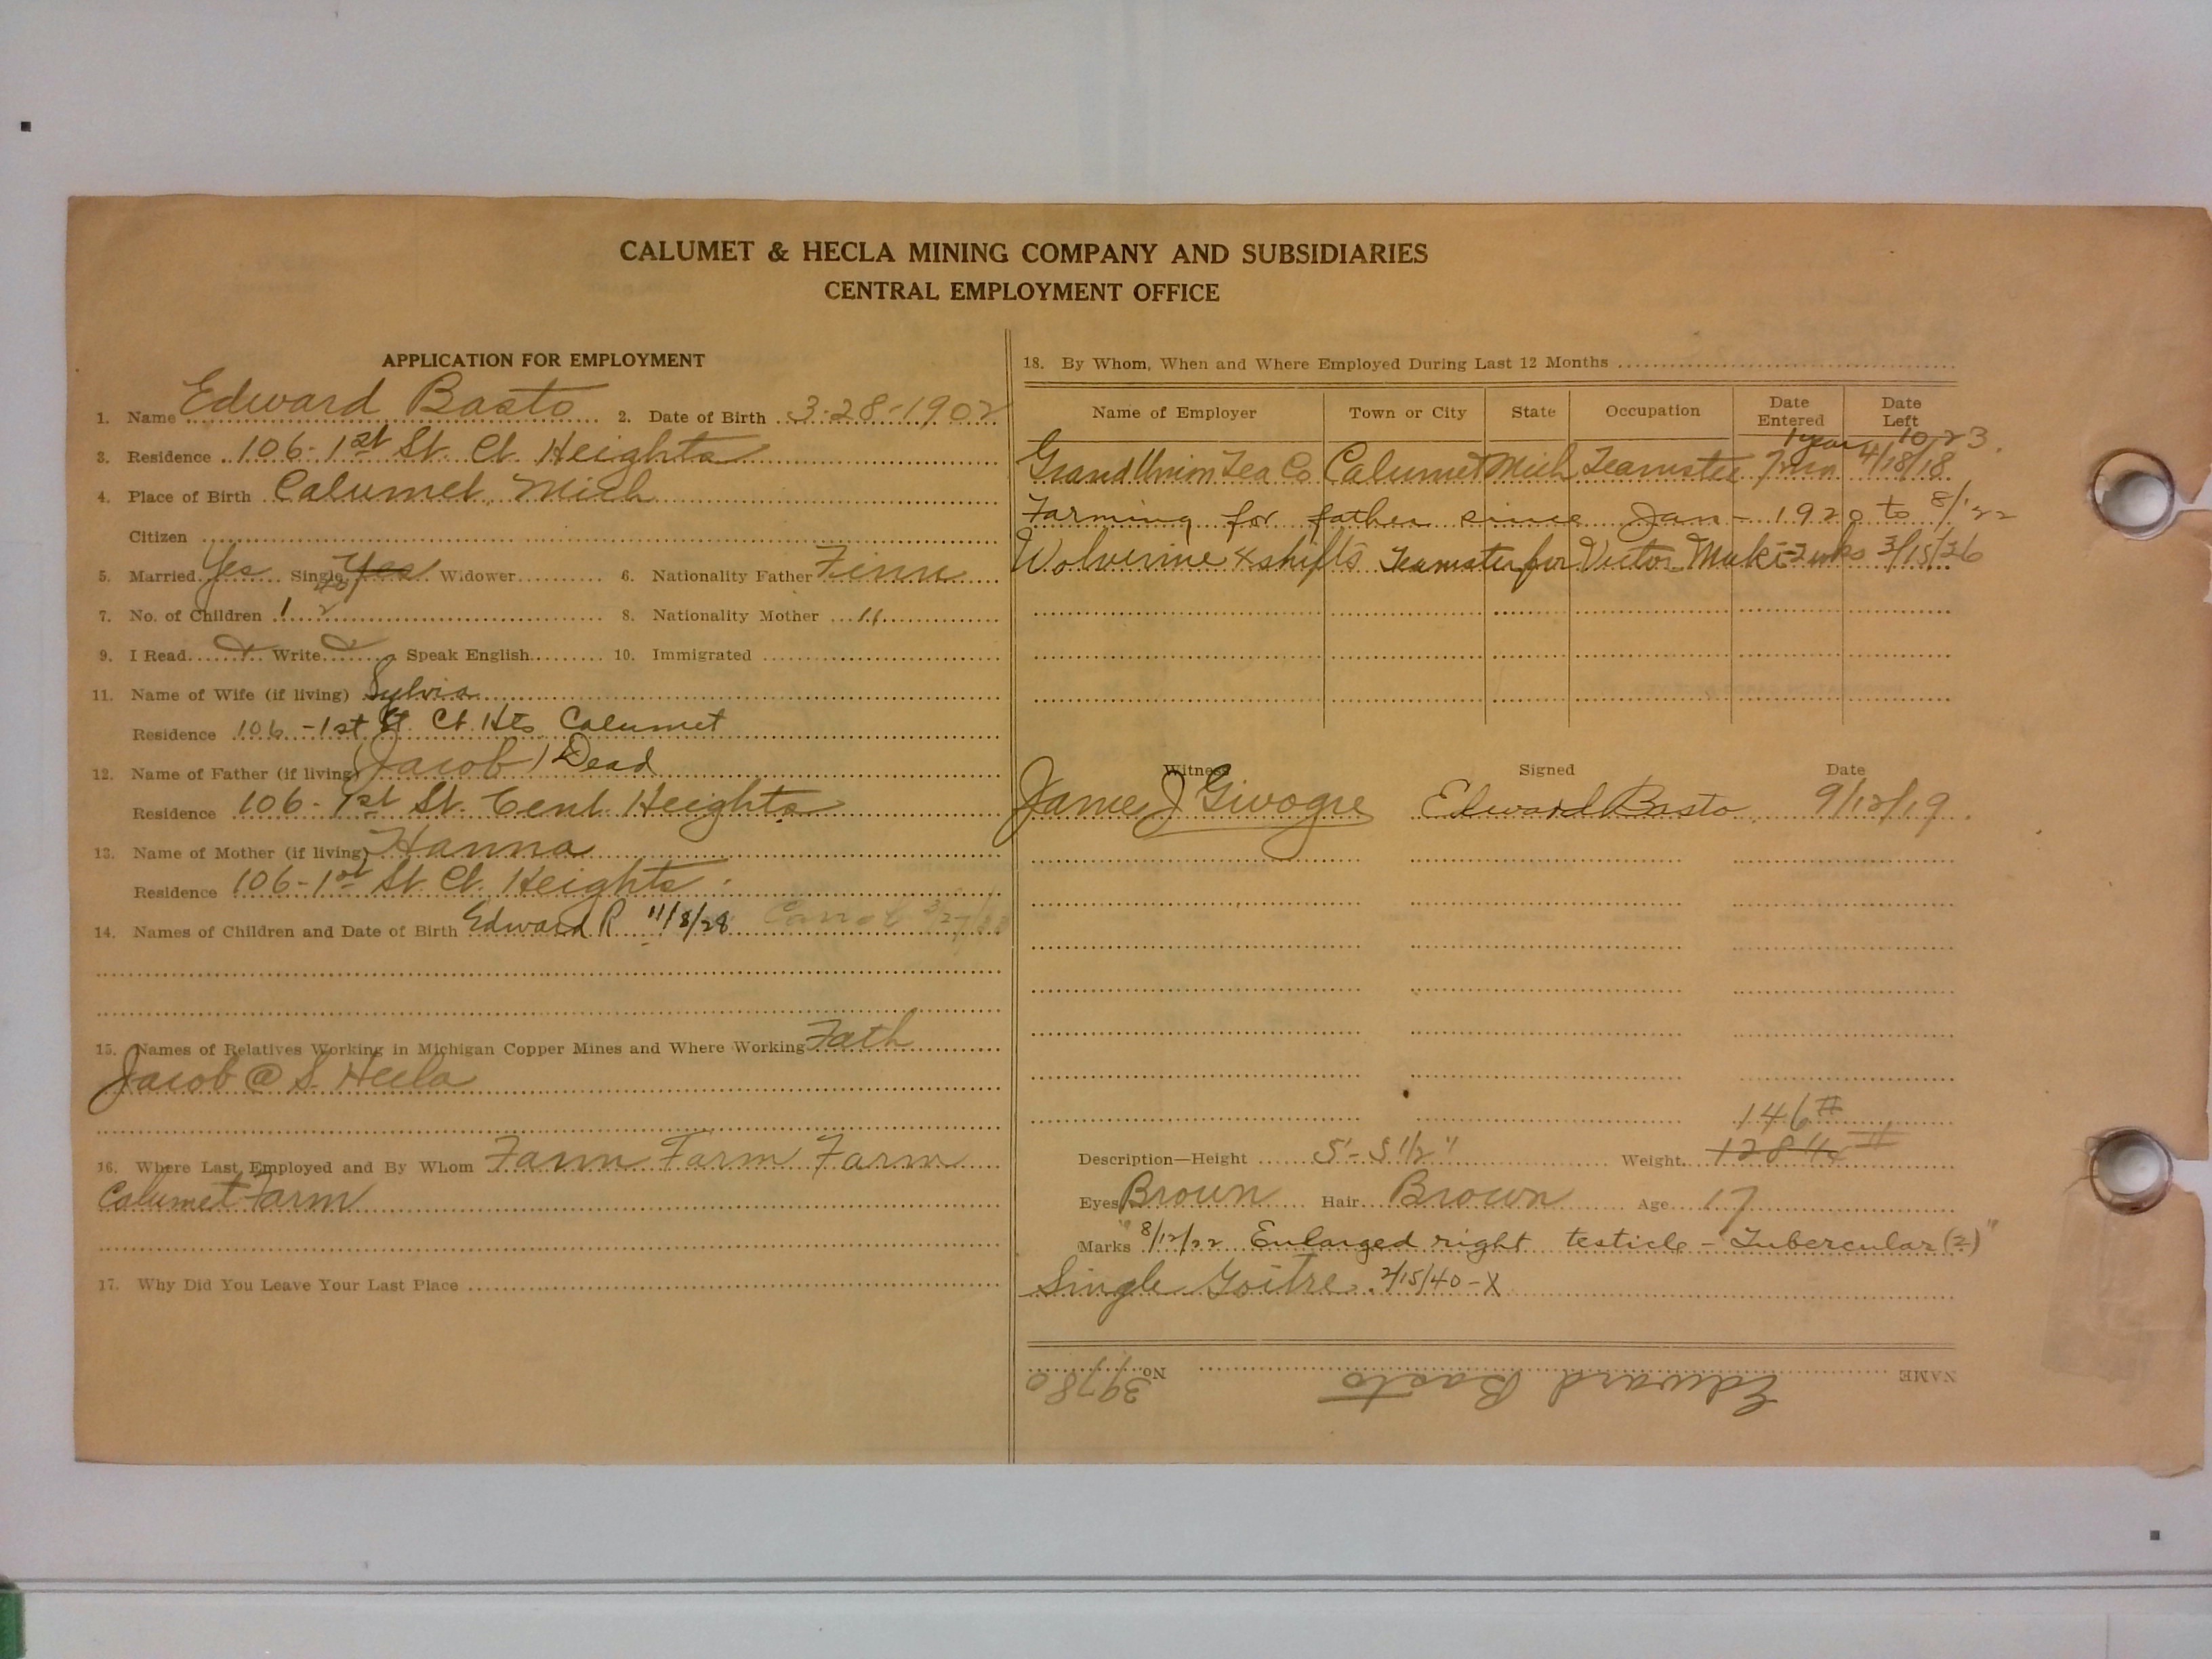 CALUMET & HECLA MINING COMPANY AND SUBSIDIARIES
CENTRAL EMPLOYMENT OFFICE
APPLICATION FOR EMPLOYMENT
1. Name Edward Basto 2. Date of Birth 3-28-1902
3. Residence 106-1st St. Cl. Heights
4. Place of Birth Calumet, Mich
Citizen
5. Married Yes Single Yes Widower 6. Nationality Father Finn
7. No. of Children 1 2 8. Nationality Mother "
9. I Read Write Speak English 10. Immigrated
11. Name of Wife (if living) Sylvia
Residence 106-1st St. Ct. Hts Calumet
12. Name of Father (if living) Jacob / Dead
Residence 106-1st St. Cent. Heights
13. Name of Mother (if living) Hanna
Residence 106-1st St. Ct. Heights
14. Names of Children and Date of Birth Edward R 11/8/28 Carol
15. Names of Relatives Working in Michigan Copper Mines and Where Working Fath
Jacob @ S. Hecla
16. Where Last Employed and By Whom Farm Farm
Calumet Farm
17. Why Did You Leave Your Last Place
18. By Whom, When and Where Employed During Last 12 Months
Name of Employer Town or City State Occupation Date Entered Date Left
1 year 10/23.
Grand Union Tea Co Calumet Mich Teamster 4/18/18
Farming for father since Jan - 1920 to 8/'22
Wolverine 4 shifts Teamster for Victor Maki-2 wks 3/15/26
Witness Signed Date
James J Edward Basto 9/12/19.
146#
Description—Height 5'-5 1/2" Weight
Eyes Brown Hair Brown Age 17
Marks "8/12/22 Enlarged right testicle - Tubercular (?)"
Single Goitre. 2/15/40-X
NAME Edward Basto No. 39780